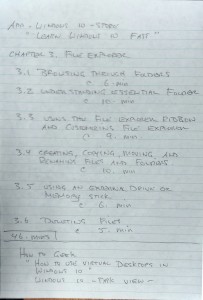 APP - WINDOWS 10 - STORE
"LEARN WINDOWS 10 FAST"
CHAPTER 3. FILE EXPLORER
3.1 BROWSING THROUGH FOLDERS
C 6. MIN
3.2 UNDERSTANDING ESSENTIAL FOLDERS
C 10. MIN
3.3 USING THE FILE EXPLORER RIBBON
AND CUSTOMIZING FILE EXPLORER
C 9. MIN
3.4 CREATING, COPYING, MOVING, AND
RENAMING FILES AND FOLDERS
C 10. MIN
3.5 USING AN EXTERNAL DRIVE OR
MEMORY STICK
C 6. MIN
3.6 DELETING FILES
C 5. MIN
46. MINS
HOW TO GEEK
"HOW TO USE VIRTUAL DESKTOPS IN
WINDOWS 10"
WINDOWS 10 - TASK VIEW -